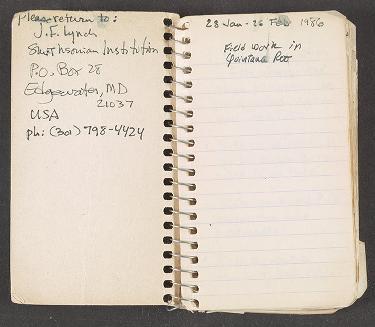 Please return to:
J.F. Lynch
Smithsonian Institution
P.O. Box 28
Edgewater, MD
21037
USA
ph: (301) 798-4424
28 Jan - 26 Feb 1986
Field work in
Quintana Roo